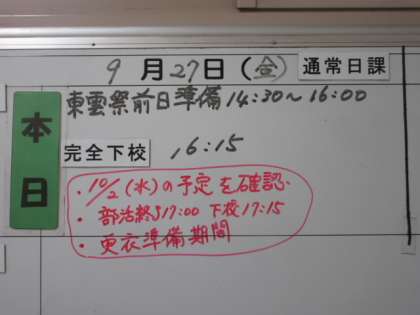 9月27日(金) 通常日課
本日
東雲祭前日準備 14:30〜16:00
完全下校 16:15
・10/2(水)の予定を確認.
・部活終り17:00 下校17:15
・更衣準備期間